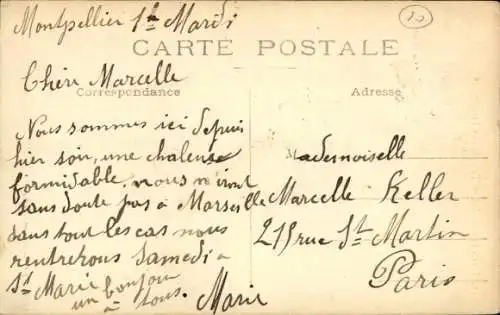 Montpellier 1h Mardi
10
CARTE POSTALE
Chère Marcelle
Correspondance
Nous sommes ici depuis
hier soir, une chaleur
formidable, nous n'irons
sans doute pas à Marseille
dans tout les cas nous
rentrerons Samedi à
St Marie un bonjour
à tous. Marie
Adresse
Mademoiselle
Marcelle Keller
215 rue St Martin
Paris